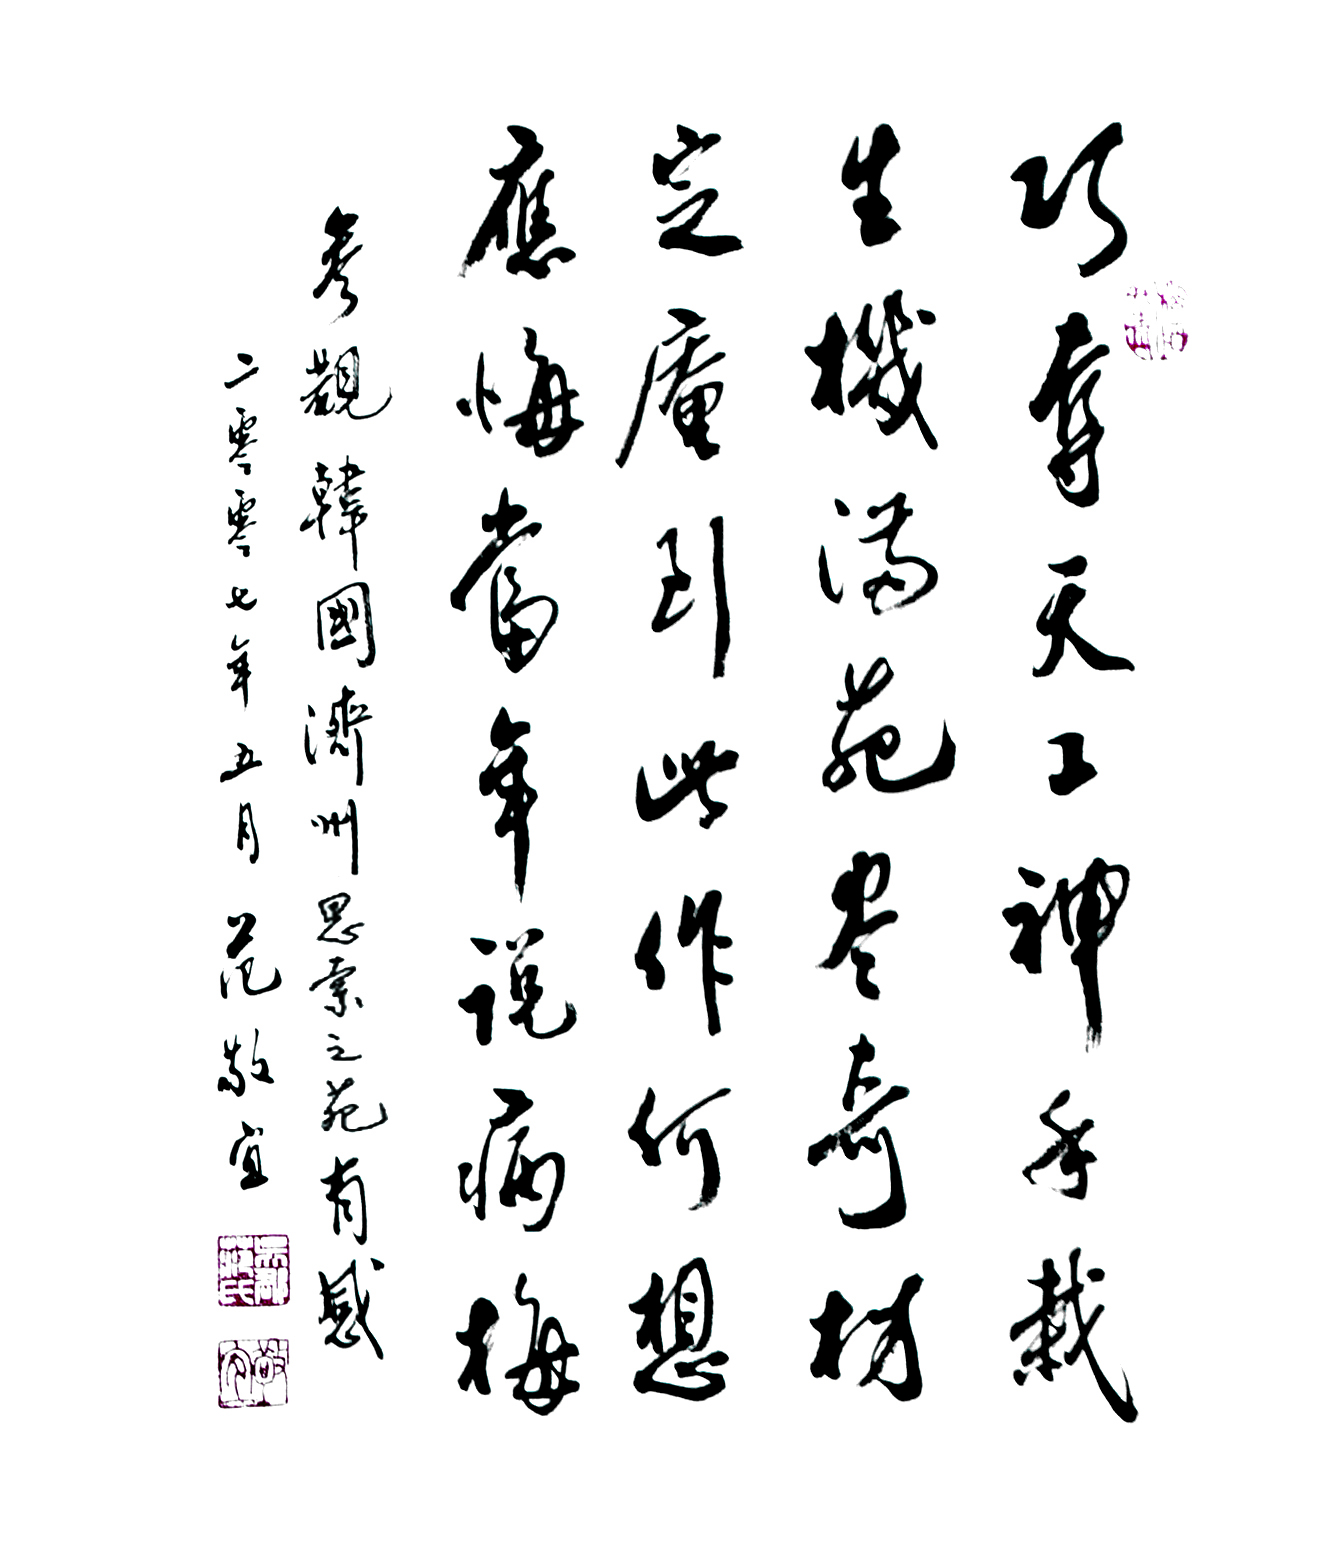 巧奪天工神手栽
生機满苑尽奇材
定庵到此作何想
應悔當年説病梅
參觀韓國濟州思索之苑有感
二零零七年五月范敬宜